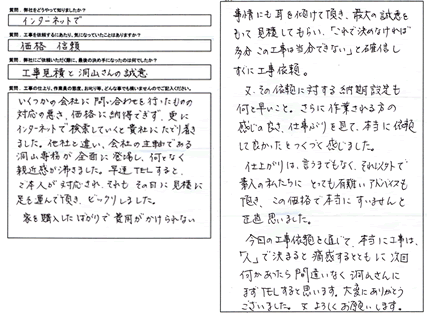 質問 弊社をどうやって知りましたか?
インターネットで
質問 工事を依頼するにあたり、気になっていたことはありますか?
価格 信頼
質問 弊社にご依頼いただく際に、最後の決め手になったのは何でしたか?
工事見積と洞山さんの誠意
質問 工事の仕上り、作業員の態度、お叱り等、どんな事でも構いませんのでご記入ください。
いくつかの会社に問い合わせを行ったものの
対応の悪さ、価格に納得できず、更に
インターネットで検索していくと貴社にたどり着き
ました。他社と違い、会社の主軸である
洞山専務が全面に登場し、何となく
親近感が沸きました。早速TELすると、
ご本人が対応され、それも その日に見積に
足を運んで頂き、ビックリしました。
家を購入したばかりで費用がかけられない
事情にも耳を傾けて頂き、最大の誠意を
もって見積してもらい、「これで決めなければ
多分この工事は当分できない」と確信し
すぐに工事依頼。
又、その依頼に対する納期設定も
何と早いこと。さらに作業される方の
感じの良さ、仕事ぶりを見て、本当に依頼
して良かったとつくづく感じました。
仕上がりは、言うまでもなく、それ以外で
素人の私たちに とっても有難いアドバイスも
頂き、この価格で本当にすいませんと
正直 思いました。
今回の工事依頼を通じて、本当に工事は、
「人」で決まると痛感するとともに次回
何かあったら間違いなく洞山さんに
まずTELすると思います。大変にありがとう
ございました。 よろしくお願いします。